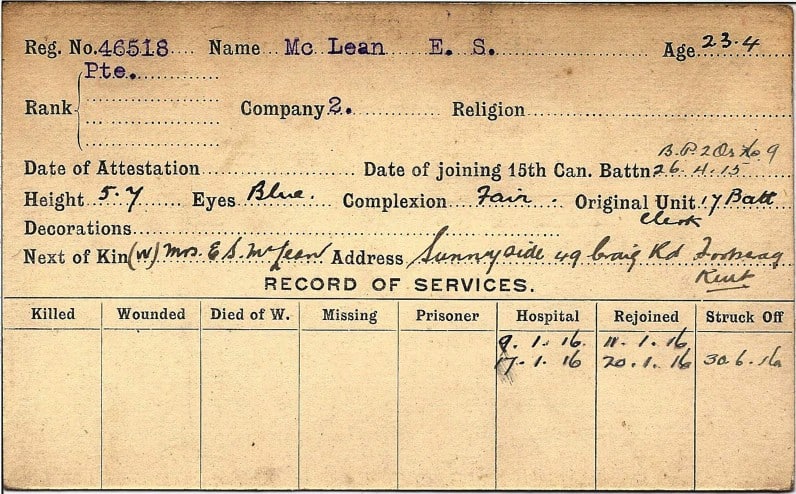 Reg. No. 46518 Name Mc Lean E. S. Age 23.4
Pte.
Rank Company 2. Religion
B.P. 2 Ors No 9
Date of Attestation Date of joining 15th Can. Battn 26.4.15
Height 5.7 Eyes Blue. Complexion Fair. Original Unit 17 Batt
Clerk
Decorations
Next of Kin (W) Mrs. E S. McLean Address Sunnyside 49 Craig Rd
Kent
RECORD OF SERVICES.
Killed Wounded Died of W. Missing Prisoner Hospital Rejoined Struck Off
9.1.16. 11.1.16
17.1.16 20.1.16 30.6.16